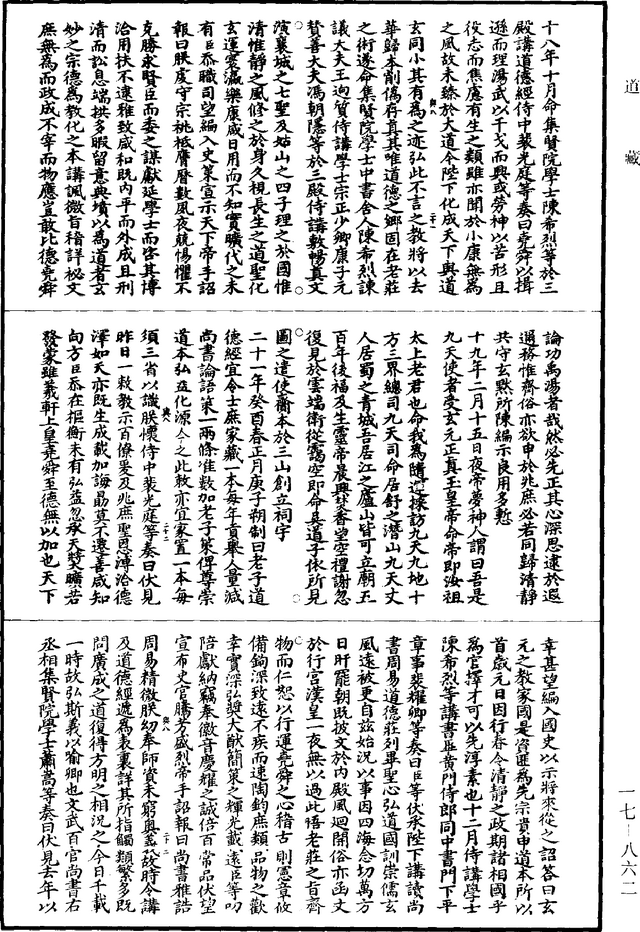 道藏
十八年十月命集賢院學士陳希烈等於三
殿講道德經侍中裴光庭等奏曰堯舜以揖
遜而理湯武以干戈而興或勞神以苦形且
役志而焦慮有生之類雖亦聞於小康無為
之風故未臻於大道今陛下化成天下興道
玄同小其有為之迹弘此不言之教將以去
華歸本削偽存真其唯道德之鄉固在老莊
之術遂命集賢院學士中書舍人陳希烈諫
議大夫王迥質侍講學士宗正少卿康子元
贊善大夫馮朝隱等於三殿侍講敷暢真文
演襄城之七聖及姑山之四子理之於國惟
清惟靜之風修之於身久視長生之道聖化
玄運寰瀛樂康咸日用而不知實曠代之未
有臣忝職司望編入史策宣示天下帝手詔
報曰朕虔守宗祧祗膺曆數夙夜兢惕懼不
克勝永賢臣而委之謀猷延學士而啟其博
洽用扶不逮雅致咸和既內平而外成且刑
清而訟息端拱多暇留意典墳以為道者玄
妙之宗德為教化之本講諷微旨稽詳祕文
庶無為而政成不宰而物應豈敢比德堯舜
論功禹湯者哉然必先正其心深思遠於遐
通務惟齊俗亦欲申於兆庶必若同歸清靜
共守玄默所陳編示良用多慙
十九年二月十五日夜帝夢神人謂曰吾是
九天使者受玄元正真玉皇帝命帝即汝祖
太上老君也命我為隨逆採訪九天九地十
方三界總司九天司命居舒之潛山九天丈
人居蜀之青城吾居江之廬山皆可立廟五
百年後福及生靈帝晨興焚香望空禮謝忽
復見於雲端衛從靄空即命吳道子依所見
圖之遣使齎本於三山創立祠宇
二十一年癸酉春正月庚子朔制曰老子道
德經宜令士庶家藏一本每年貢舉人量減
尚書論語策一兩條准數加老子策俾尊崇
道本弘益化源今之此敕亦宜家置一本每
須三省以識朕懷侍中裴光庭等奏曰伏見
昨日一敕教示百僚爰及兆庶聖恩溥洽德
澤如天亦既生成載加誨勗莫不遷善咸知
向方臣忝在樞衡未有弘益忽承天獎曠若
發蒙雖羲軒上皇堯舜至德無以加也天下
幸甚望編入國史以示將來從之詔答曰玄
元之教家國是資匪為先宗貴申道本所以
首歲元日因行春令清靜之政期諸相國乎
為官擇才可以先淳素也十二月侍講學士
陳希烈等講書畢黃門侍郎同中書門下平
章事裴耀卿等奏曰臣等伏承陛下講讀尚
書周易道德莊列畢聖心弘道國訓崇儒玄
風遠被更自茲始況以事因四海念切萬方
日旰罷朝既披文於內殿風迴閱俗亦函文
於行宮漢皇一夜無以過此悟老莊之旨齊
物而仁恕以行運堯舜之心稽古則憲章攸
備鉤深致遠不疾而速陶鈞庶類品物之歡
幸實深弘獎大猷簡策之輝光載遠臣等叨
陪獻納竊奉徽音慶耀之誠倍百常品伏望
宣布史官騰芳盛烈帝手詔報曰尚書雅誥
周易精微朕幼奉師資未窮奧義故時令講
及道德經遞為表裏詳其所指觸類繁多既
問廣成之道復得方明之相況之今日千載
一時故弘斯義以喻卿也文武百官尚書右
丞相集賢院學士蕭嵩等奏曰伏見去年以
一七-八六二